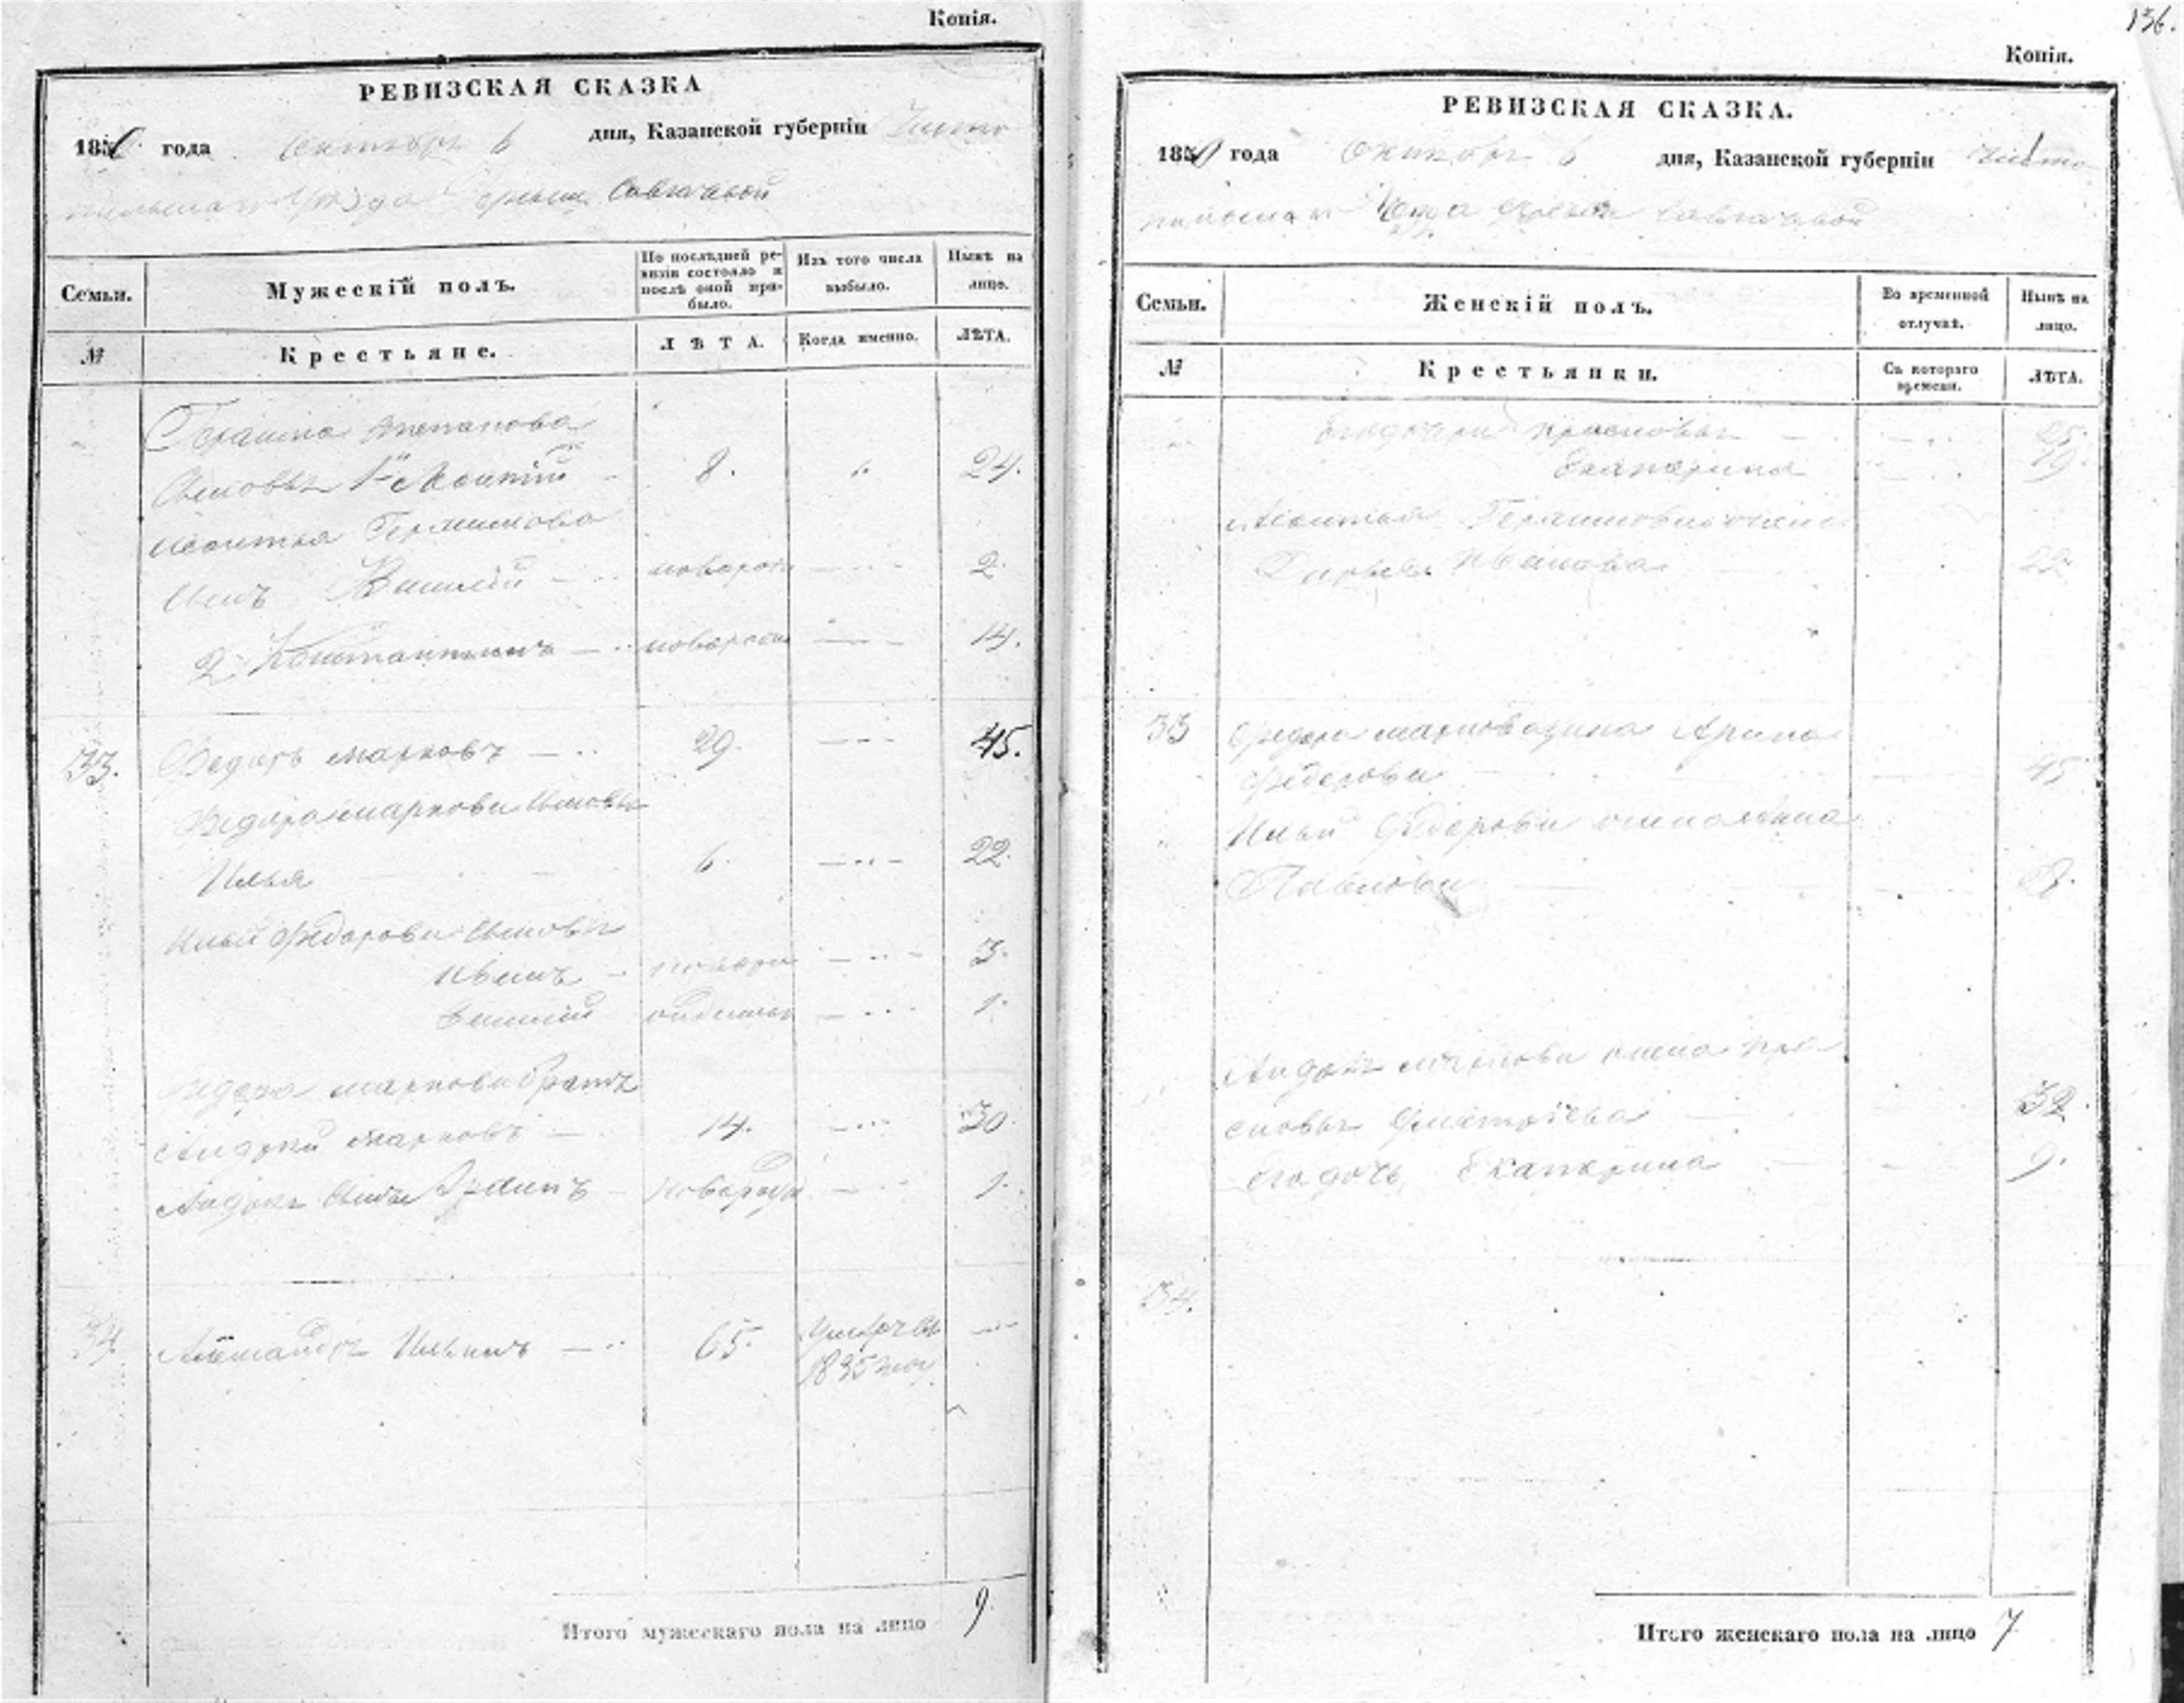 Копія.
РЕВИЗСКАЯ СКАЗКА
1850 года Октября 6 дня, Казанской губерніи Чисто
польскаго Уѣзда
Семьи.
Мужескій полъ.
По послѣдней ре-
визіи состояло и
послѣ оной при-
было.
Изъ того числа
выбыло.
Нынѣ на
лицо.
№
Крестьяне.
ЛѢТА.
Когда именно.
ЛѢТА.
Герасима Степанова
Сыновья 1й Леонтій 8. 24.
Леонтья Герасимова
Сынъ Василій новорож 2.
2 Константинъ новорож 14.
33. Федоръ Марковъ 29. 45.
Федора Маркова Сыновья
Илья 6. 22.
Ильи Федорова Сыновья
Иванъ новоро 3.
Василій 1.
Федора Маркова братъ
Андрей Марковъ 14. 30.
Андрея Сынъ новорож 1.
34 Александръ Ильинъ 65. Умеръ въ
1835 году
Итого мужескаго пола на лицо 9.
136.
Копія.
РЕВИЗСКАЯ СКАЗКА.
1850 года Октября 6 дня, Казанской губерніи Чисто
польскаго
Семьи.
Женскій полъ.
Во временной
отлучкѣ.
Нынѣ на
лицо.
№
Крестьянки.
Съ котораго
времени.
ЛѢТА.
Его дочери
Екатерина 19.
Леонтья Герасимова жена
Иванова
33 Федора Маркова жена Арина
Федорова 45
Ильи Федорова жена
Павлова
Андрея Маркова жена Пра
сковья 32.
Его дочь Екатерина 9.
34.
Итого женскаго пола на лицо 7